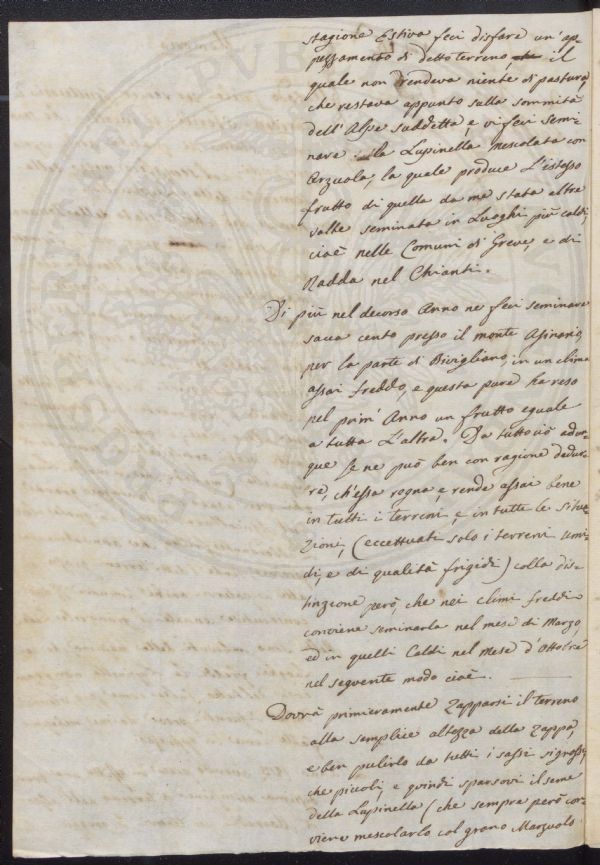 stagione Estiva feci disfare un' ap-
pezzamento di detto terreno, il
quale non rendeva niente di pastura,
che restava appunto sulla sommità
dell' Alpe suddetta, e vi feci semi-
nare la Lupinella mescolata con
Orzuola, la quale produce l'istesso
frutto di quella da me stata altre
volte seminata in Luoghi più caldi,
cioè nelle Comuni di Greve, e di
Radda nel Chianti.
Di più nel decorso Anno ne feci seminare
sacca cento presso il monte Asinario,
per la parte di Bivigliano, in un clima
assai freddo, e questa pure ha reso
pel prim' Anno un frutto eguale
a tutta l'altra. Da tutto ciò adun-
que se ne può ben con ragione dedur-
re, ch'essa rogna e rende assai bene
in tutti i terreni, e in tutte le situa-
zioni, (eccettuati solo i terreni umi-
di, e di qualità frigidi) colla dis-
tinzione però, che nei climi freddi
conviene seminarla nel mese di Marzo,
ed in quelli Caldi nel Mese d'Ottobre
nel seguente modo cioè.
Dovrà primieramente Zapparsi il terreno
alla semplice altezza della Zappa,
e ben pulirlo da tutti i sassi sì grossi,
che piccoli, e quindi sparsovi il seme
della Lupinella (che sempre però con-
viene mescolarlo col grano Marzuolo